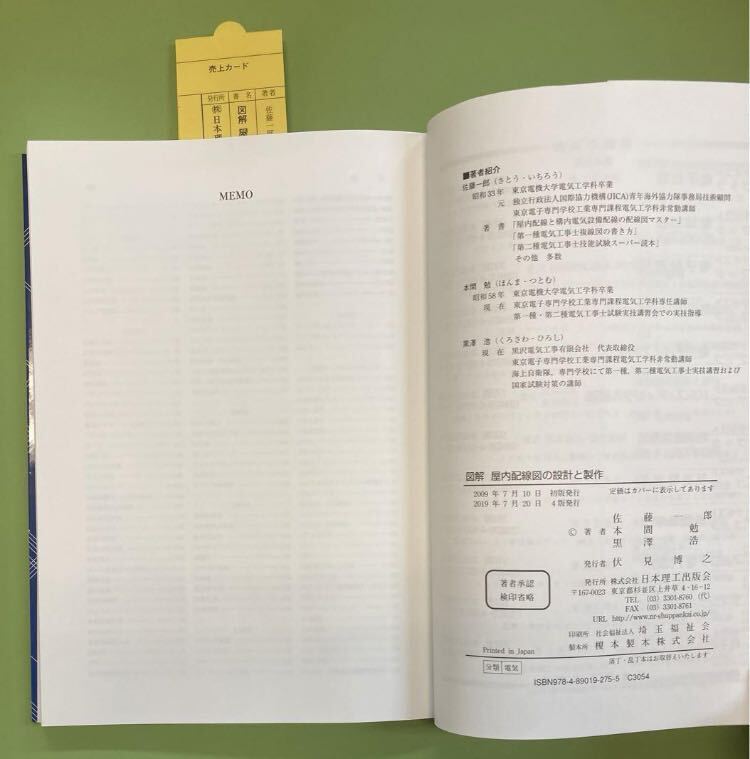 売上カード
発行所
書名
著者
㈱日本理
図解 屋
佐藤一郎
MEMO
■著者紹介
佐藤一郎(さとう・いちろう)
昭和33年 東京電機大学電気工学科卒業
元 独立行政法人国際協力機構(JICA)青年海外協力隊事務局技術顧問
東京電子専門学校工業専門課程電気工学科非常勤講師
著書 「屋内配線と構内電気設備配線の配線図マスター」
「第一種電気工事士複線図の書き方」
「第二種電気工事士技能試験スーパー読本」
その他 多数
本間 勉(ほんま・つとむ)
昭和58年 東京電機大学電気工学科卒業
現在 東京電子専門学校工業専門課程電気工学科専任講師
第一種・第二種電気工事士試験実技講習会での実技指導
黒澤 浩(くろさわ・ひろし)
現在 黒沢電気工事有限会社 代表取締役
東京電子専門学校工業専門課程電気工学科非常勤講師
海上自衛隊,専門学校にて第一種,第二種電気工事士実技講習および
国家試験対策の講師
図解 屋内配線図の設計と製作
2009年7月10日 初版発行 定価はカバーに表示してあります
2019年7月20日 4版発行
佐藤一郎
Ⓒ 著者 本間 勉
黒澤 浩
発行者 伏見博之
著者承認
検印省略
発行所 株式会社 日本理工出版会
〒167-0023 東京都杉並区上井草4-16-12
TEL (03)3301-8760(代)
FAX (03)3301-8761
URL http://www.nr-shuppankai.co.jp/
印刷所 社会福祉法人 埼玉福祉会
製本所 榎本製本株式会社
Printed in Japan
落丁・乱丁本はお取替えいたします
分類 電気
ISBN978-4-89019-275-5 C3054